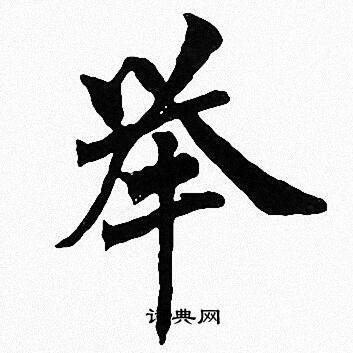 举
词典网